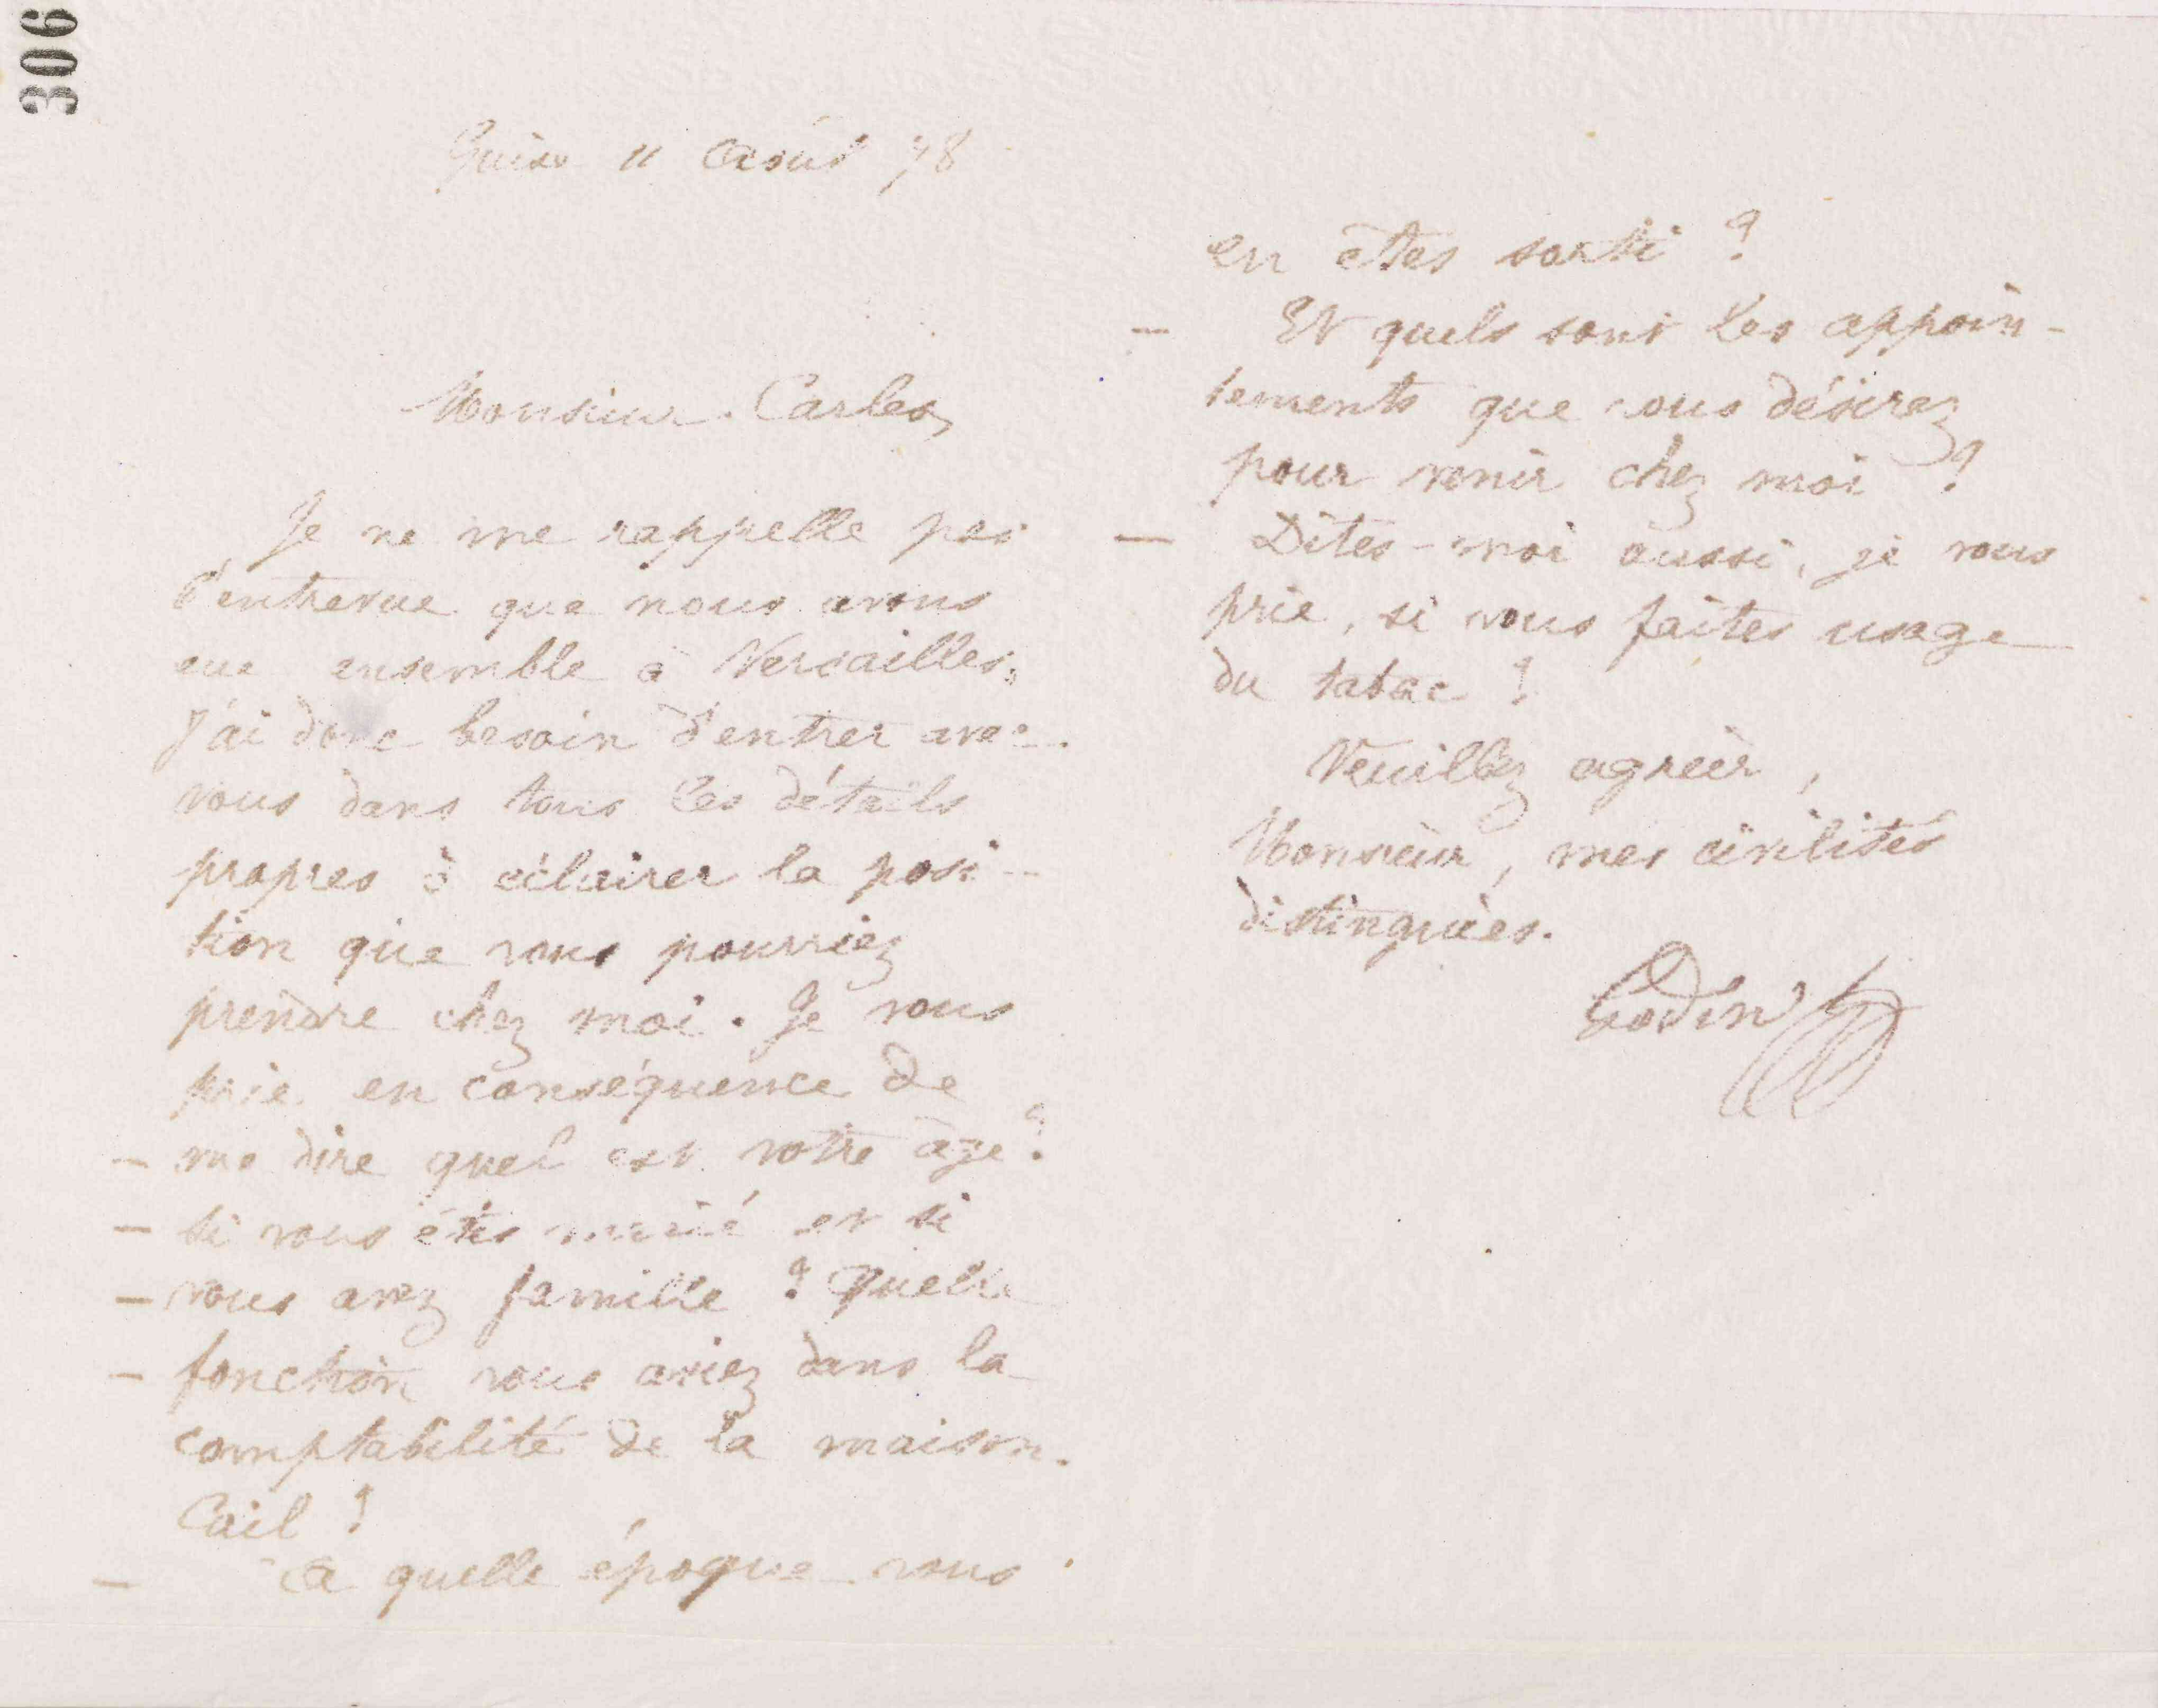 306
Guise 11 Août 78
Monsieur Carles,
Je ne me rappelle pas
d'entrevue que nous avons
eue ensemble à Versailles.
J'ai donc besoin d'entrer avec
vous dans tous les détails
propres à éclairer la posi-
tion que vous pourriez
prendre chez moi. Je vous
prie en conséquence de
— me dire quel est votre âge ?
— si vous êtes marié et si
— vous avez famille ? Quelle
— fonction vous aviez dans la
comptabilité de la maison
Cail ?
— A quelle époque vous
en êtes sorti ?
— Et quels sont les appoin-
tements que vous désirez
pour venir chez moi ?
— Dites-moi aussi, je vous
prie, si vous faites usage
du tabac ?
Veuillez agréer,
Monsieur, mes civilités
distinguées.
Godin